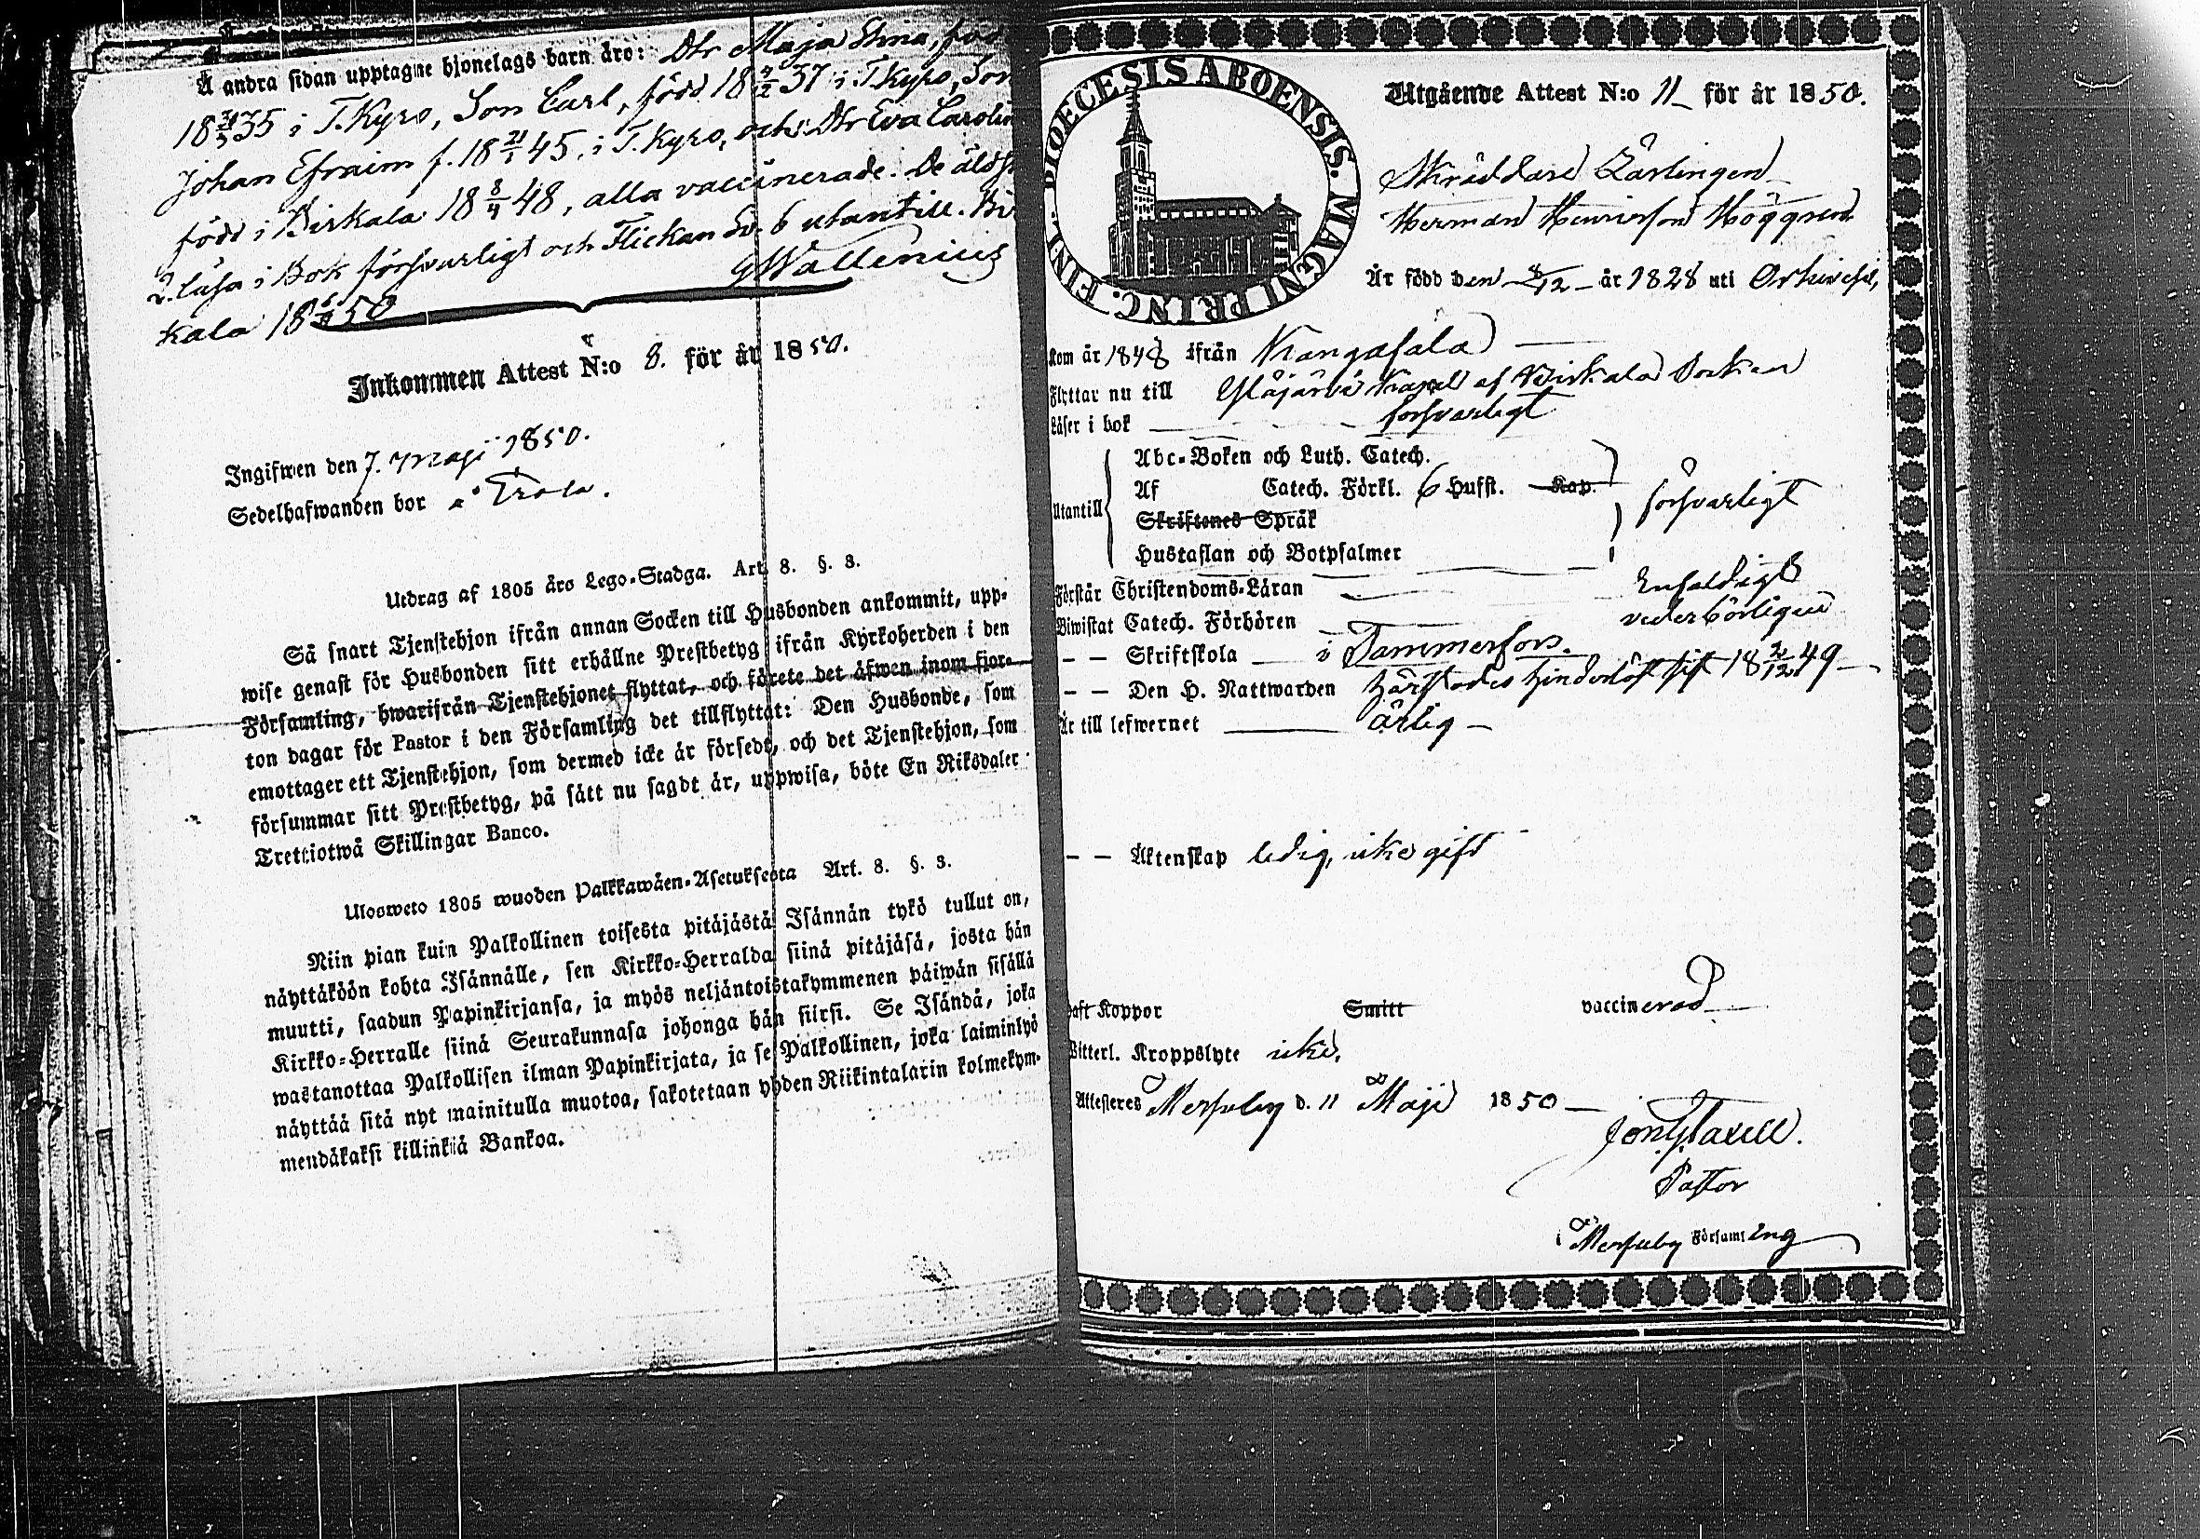 Å andra sidan upptagne hjonelags barn äro: Dtr Maja Stina, född
18 35 i T.Kyro, Son Carl, född 18 4/12 37 i T.Kyro, Son
Johan Efraim f. 18 21/1 45, i T.Kyro, och Dtr Eva Carolina
född i Birkala 18 8/4 48, alla vaccinerade. De äldsta
2. läsa i Bok försvarligt och Flickan 6 utantill. Bir
kala 18 50 Wallenius
Inkommen Attest N:o 8. för år 1850.
Ingifwen den 7. Maji 1850.
Sedelhafwanden bor
Utdrag af 1805 års Lego-Stadga. Art. 8. §. 3.
Så snart Tjenstehjon ifrån annan Socken till Husbonden ankommit, upp-
wise genast för Husbonden sitt erhållne Prestbetyg ifrån Kyrkoherden i den
Församling, hwarifrån Tjenstehjonet flyttat, och förete det äfwen inom fjor-
ton dagar för Pastor i den Församling det tillflyttat: Den Husbonde, som
emottager ett Tjenstehjon, som dermed icke är försedt, och det Tjenstehjon, som
försummar sitt Prestbetyg, på sätt nu sagdt är, uppwisa, böte En Riksdaler
Trettiotwå Skillingar Banco.
Ulosweto 1805 wuoden Palkkawäen-Asetuksesta Art. 8. §. 3.
Niin pian kuin Palkollinen toisesta pitäjästä Isännän tykö tullut on,
näyttäköön kohta Isännälle, sen Kirkko-Herralda siinä pitäjäsä, josta hän
muutti, saadun Papinkirjansa, ja myös neljäntoistakymmenen päiwän sisällä
Kirkko-Herralle siinä Seurakunnasa johonga hän siirsi. Se Isändä, joka
wastanottaa Palkollisen ilman Papinkirjata, ja se Palkollinen, joka laiminlyö
näyttää sitä nyt mainitulla muotoa, sakotetaan yhden Riikintalarin kolmekym-
mendäkaksi killinkiä Bankoa.
DIOECESIS ABOENSIS. MAGNI PRINC. FINL.
Utgående Attest N:o 11 för år 1850.
Skräddare Lärlingen
Herman Henricsson Höggren
Är född den 8/12 år 1828 uti Orihvesi,
kom år 1848 ifrån Kangasala
Flyttar nu till Ylöjärvi Kapell af Birkala Socken
Läser i bok försvarligt
Utantill
Abc-Boken och Luth. Catech.
Af Catech. Förkl. 6 Hufst. Kap.
Skriftenes Språk
försvarligt
Hustaflan och Botpsalmer
Förstår Christendoms-Läran Enfaldigt
Biwistat Catech. Förhören vederbörligen
– – Skriftskola i Tammerfors.
– – Den H. Nattwarden härstädes hinderlöst sist 18 49
Är till lefwernet ärlig
– – Äktenskap ledig, icke gift
haft Koppor Smitt vaccinerad
Witterl. Kroppslyte icke.
Attesteres Messuby d. 11 Maji 1850
Pastor
i Messuby Församling